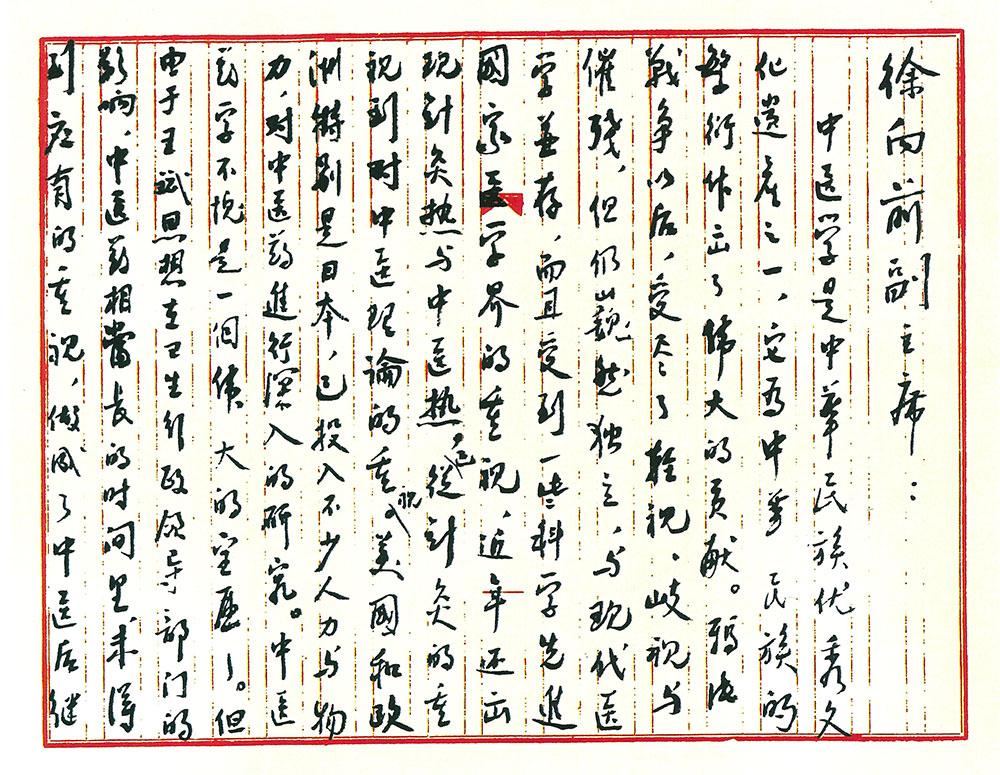 徐向前副主席：
中医学是中华民族优秀文
化遗产之一，它为中华民族的
繁衍作出了伟大的贡献。鸦片
战争以后，受尽了轻视、歧视与
催残，但仍巍然独立，与现代医
学并存，而且受到一些科学先進
國家医学界的重视，近年还出
现针灸热与中医热。已從针灸的重
视到对中医理論的重视，美國和欧
洲特别是日本，已投入不少人力与物
力，对中医药進行深入的研究。中医
药学不愧是一個伟大的宝库！。但
由于王斌思想在卫生行政领导部门的
影响，中医药相當长的时间里未得
到应有的重视，做成了中医后继